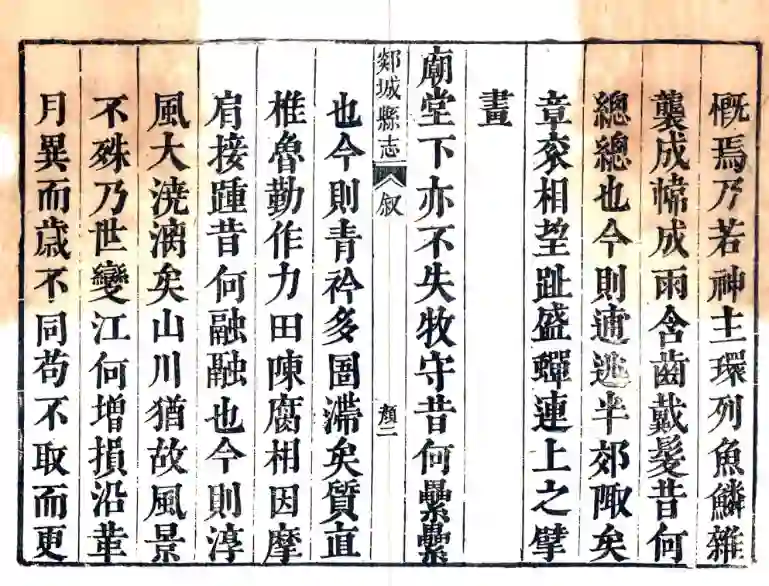 慨焉乃若神主環列魚鱗雜
襲成幃成雨含齒戴髮昔何
總總也今則逋逃半郊陬矣
章衮相望趾盛蟬連上之擘
畫
廟堂下亦不失牧守昔何纍纍
郯城縣志 叙 顏二
也今則青衿多固滯矣質直
椎魯勤作力田陳腐相因摩
肩接踵昔何融融也今則淳
風大澆漓矣山川猶故風景
不殊乃世變江何增損沿革
月異而歲不同苟不取而更